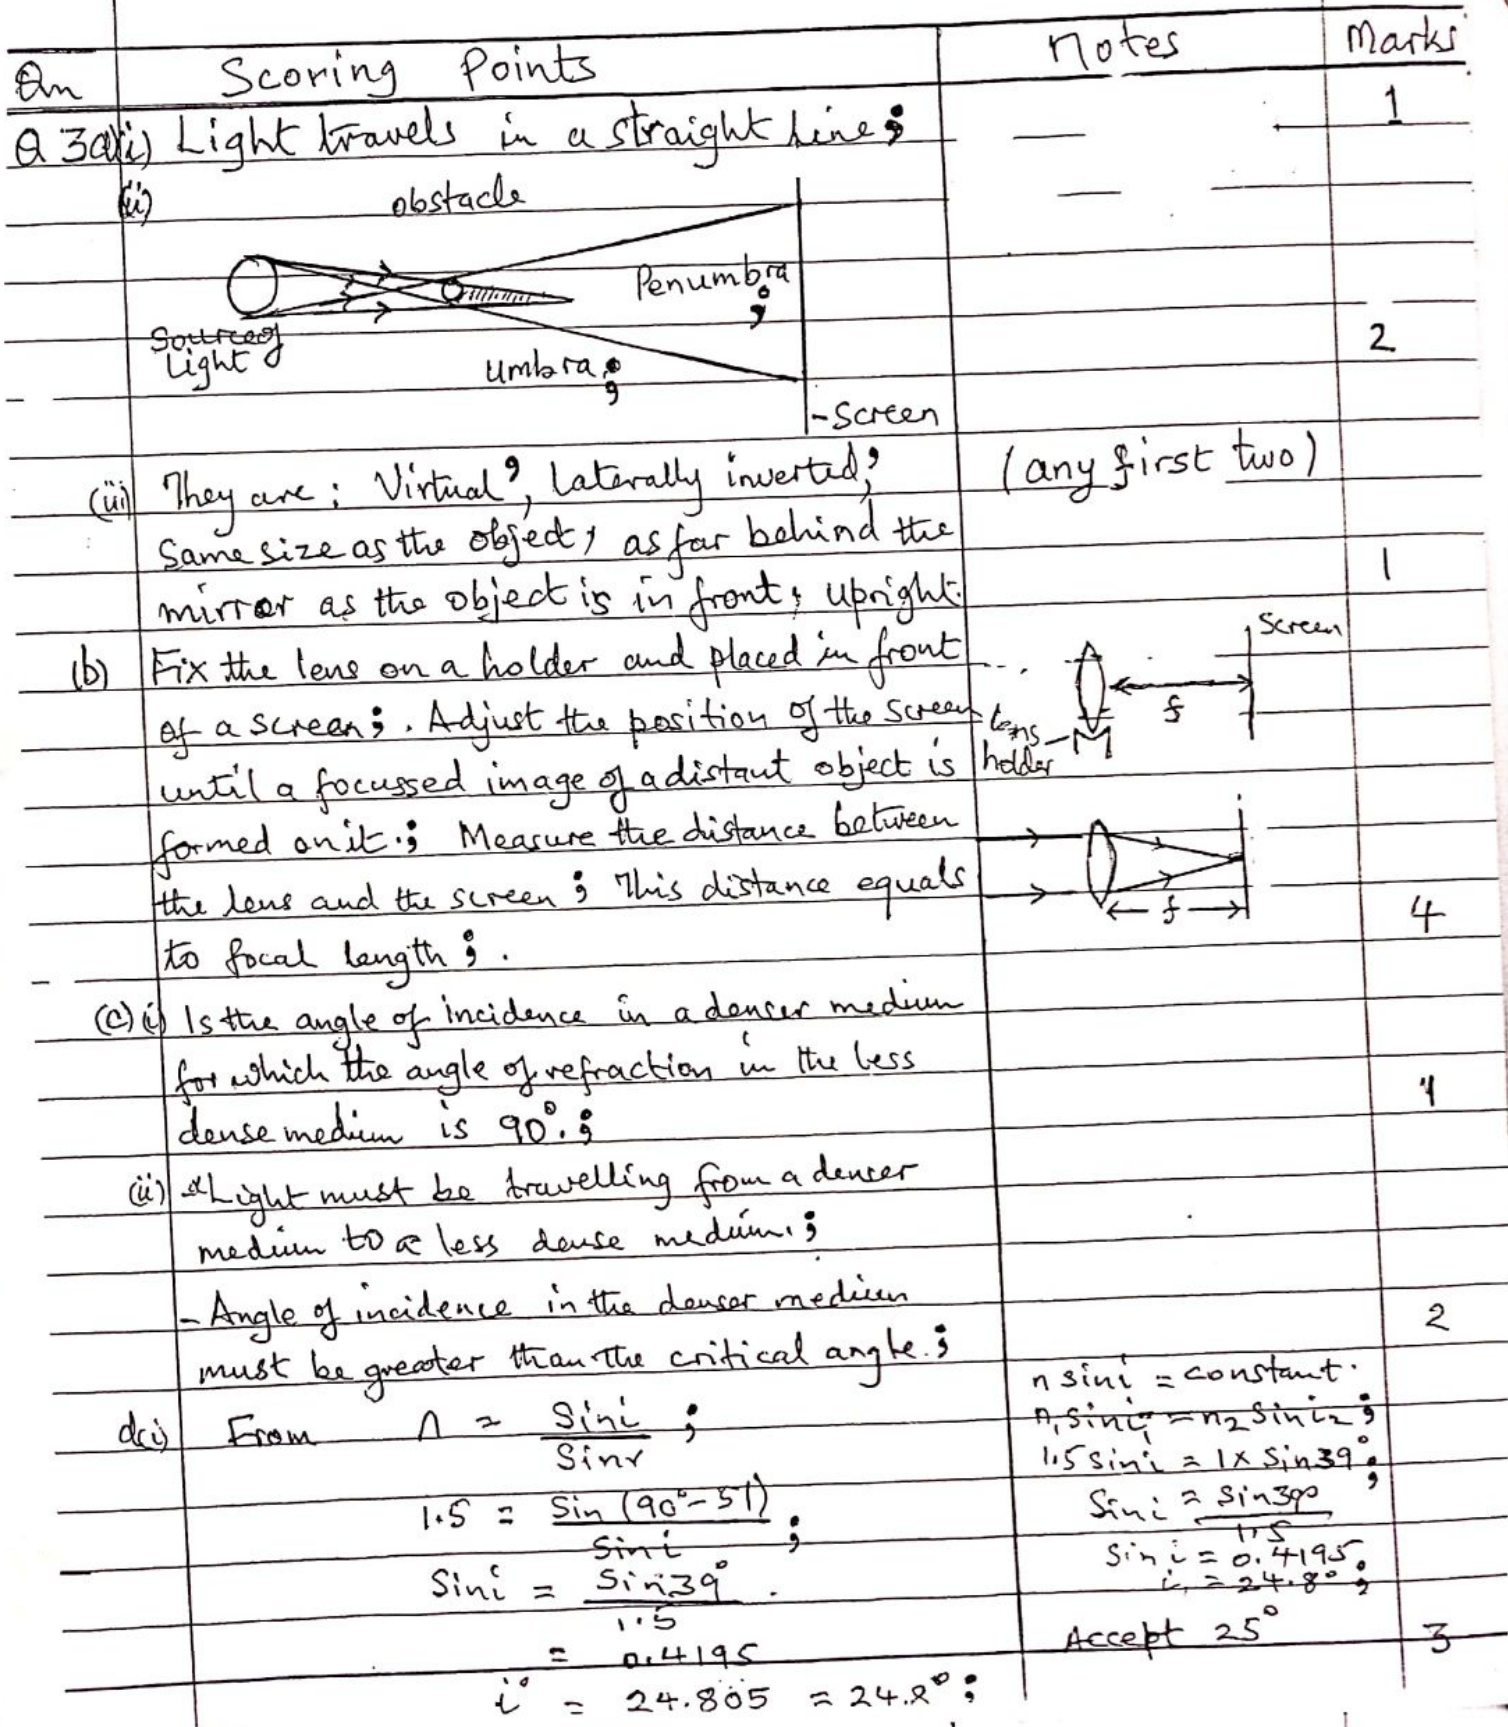 Qn Scoring Points Notes Marks
Q 3a(i) Light travels in a straight line; 1
(ii) obstacle
Penumbra ;
Source of
Light
Umbra ;
2
- Screen
(iii) They are; Virtual; laterally inverted; (any first two)
Same size as the object; as far behind the
mirror as the object is in front; upright. 1
(b) Fix the lens on a holder and placed in front
of a screen; . Adjust the position of the screen
until a focussed image of a distant object is
formed on it.; Measure the distance between
the lens and the screen; This distance equals
to focal length; .
Screen
f
lens
holder
f
4
(c) (i) Is the angle of incidence in a denser medium
for which the angle of refraction in the less
dense medium is 90°.; 1
(ii) Light must be travelling from a denser
medium to a less dense medium.;
- Angle of incidence in the denser medium
must be greater than the critical angle.; 2
d(i) From n = Sini / Sinr ;
1.5 = Sin (90° - 51) / Sin i ;
Sini = Sin39° / 1.5 .
= 0.4195
i° = 24.805 = 24.8°;
n sini = constant.
n₁ sin i₁ = n₂ sin i₂ ;
1.5 sin i = 1 x sin 39° ;
Sin i = Sin39° / 1.5
Sin i = 0.4195
i = 24.8° ;
Accept 25° 3